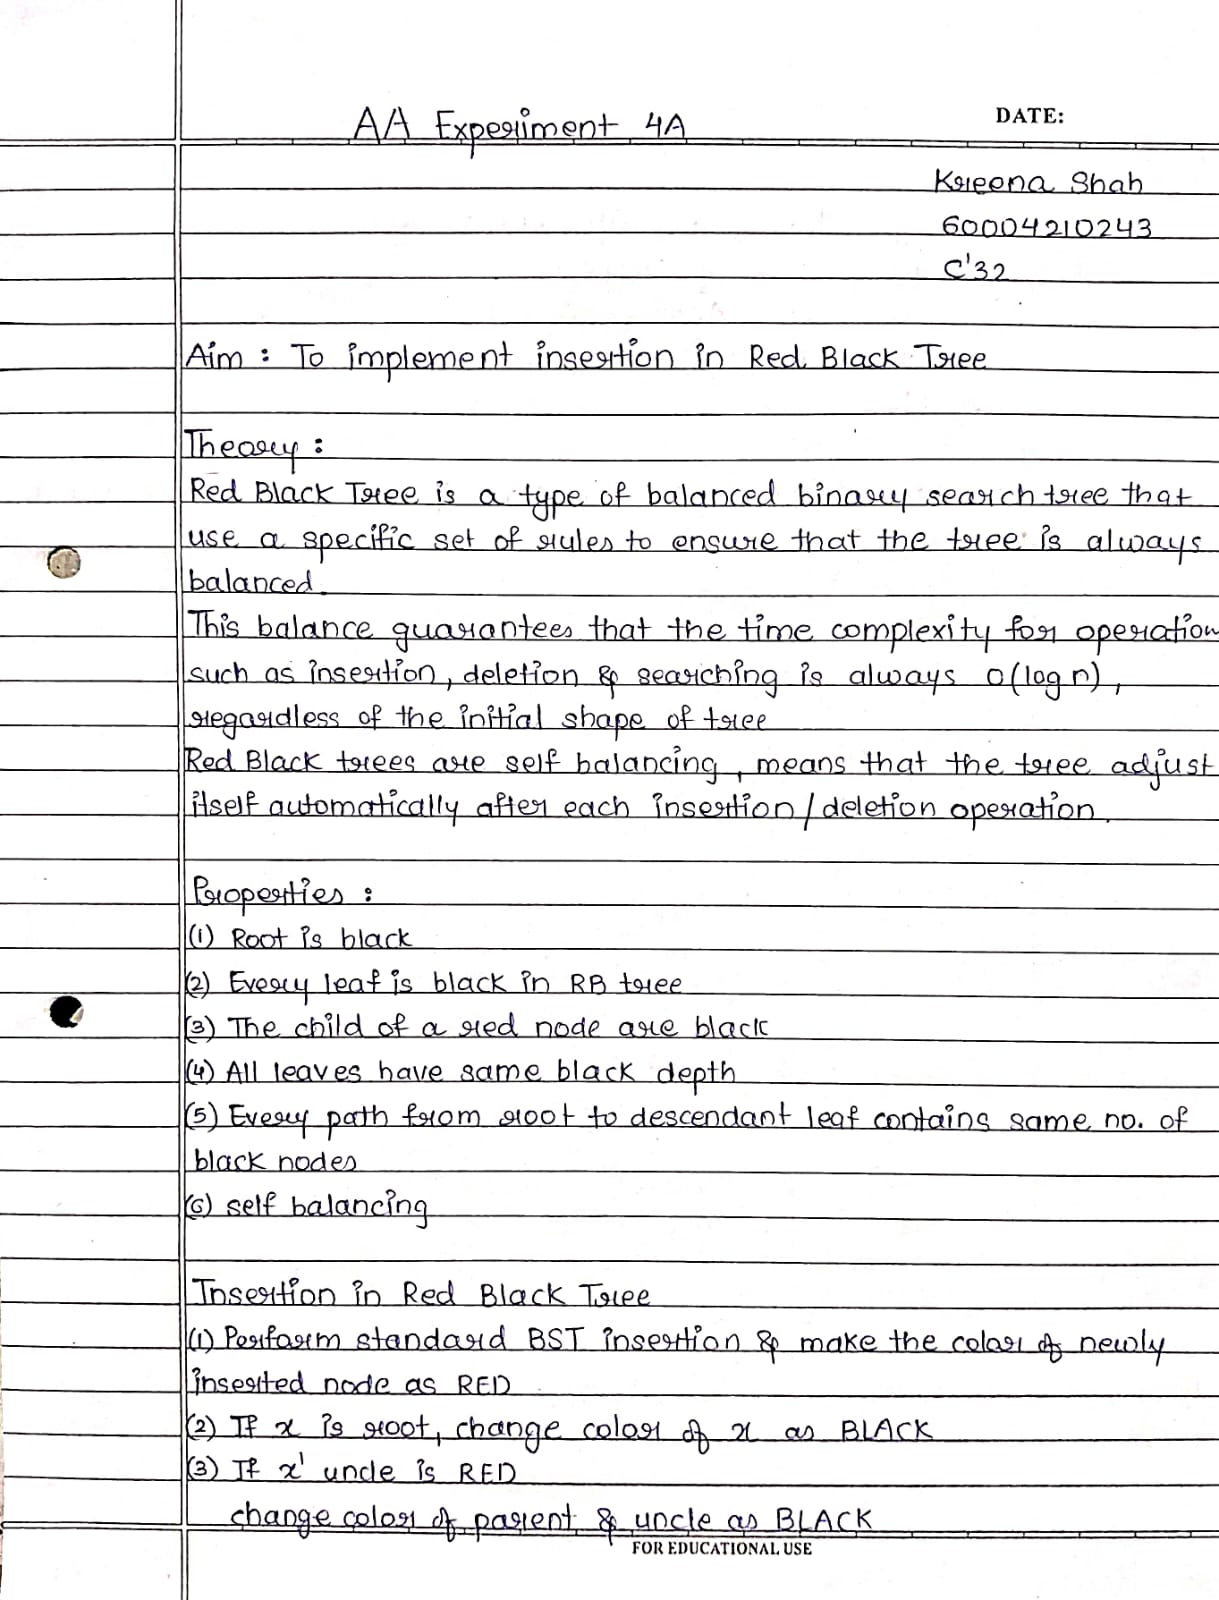 AA Experiment 4A
DATE:
Kreena Shah
60004210243
C'32
Aim : To implement insertion in Red Black Tree
Theory :
Red Black Tree is a type of balanced binary search tree that
use a specific set of rules to ensure that the tree is always
balanced.
This balance guarantees that the time complexity for operation
such as insertion, deletion & searching is always O(log n),
regardless of the initial shape of tree
Red Black trees are self balancing, means that the tree adjust
itself automatically after each insertion/deletion operation.
Properties :
(1) Root is black
(2) Every leaf is black in RB tree
(3) The child of a red node are black
(4) All leaves have same black depth
(5) Every path from root to descendant leaf contains same no. of
black nodes
(6) self balancing
Insertion in Red Black Tree
(1) Perform standard BST insertion & make the color of newly
inserted node as RED
(2) If x is root, change color of x as BLACK
(3) If x' uncle is RED
change color of parent & uncle as BLACK
FOR EDUCATIONAL USE